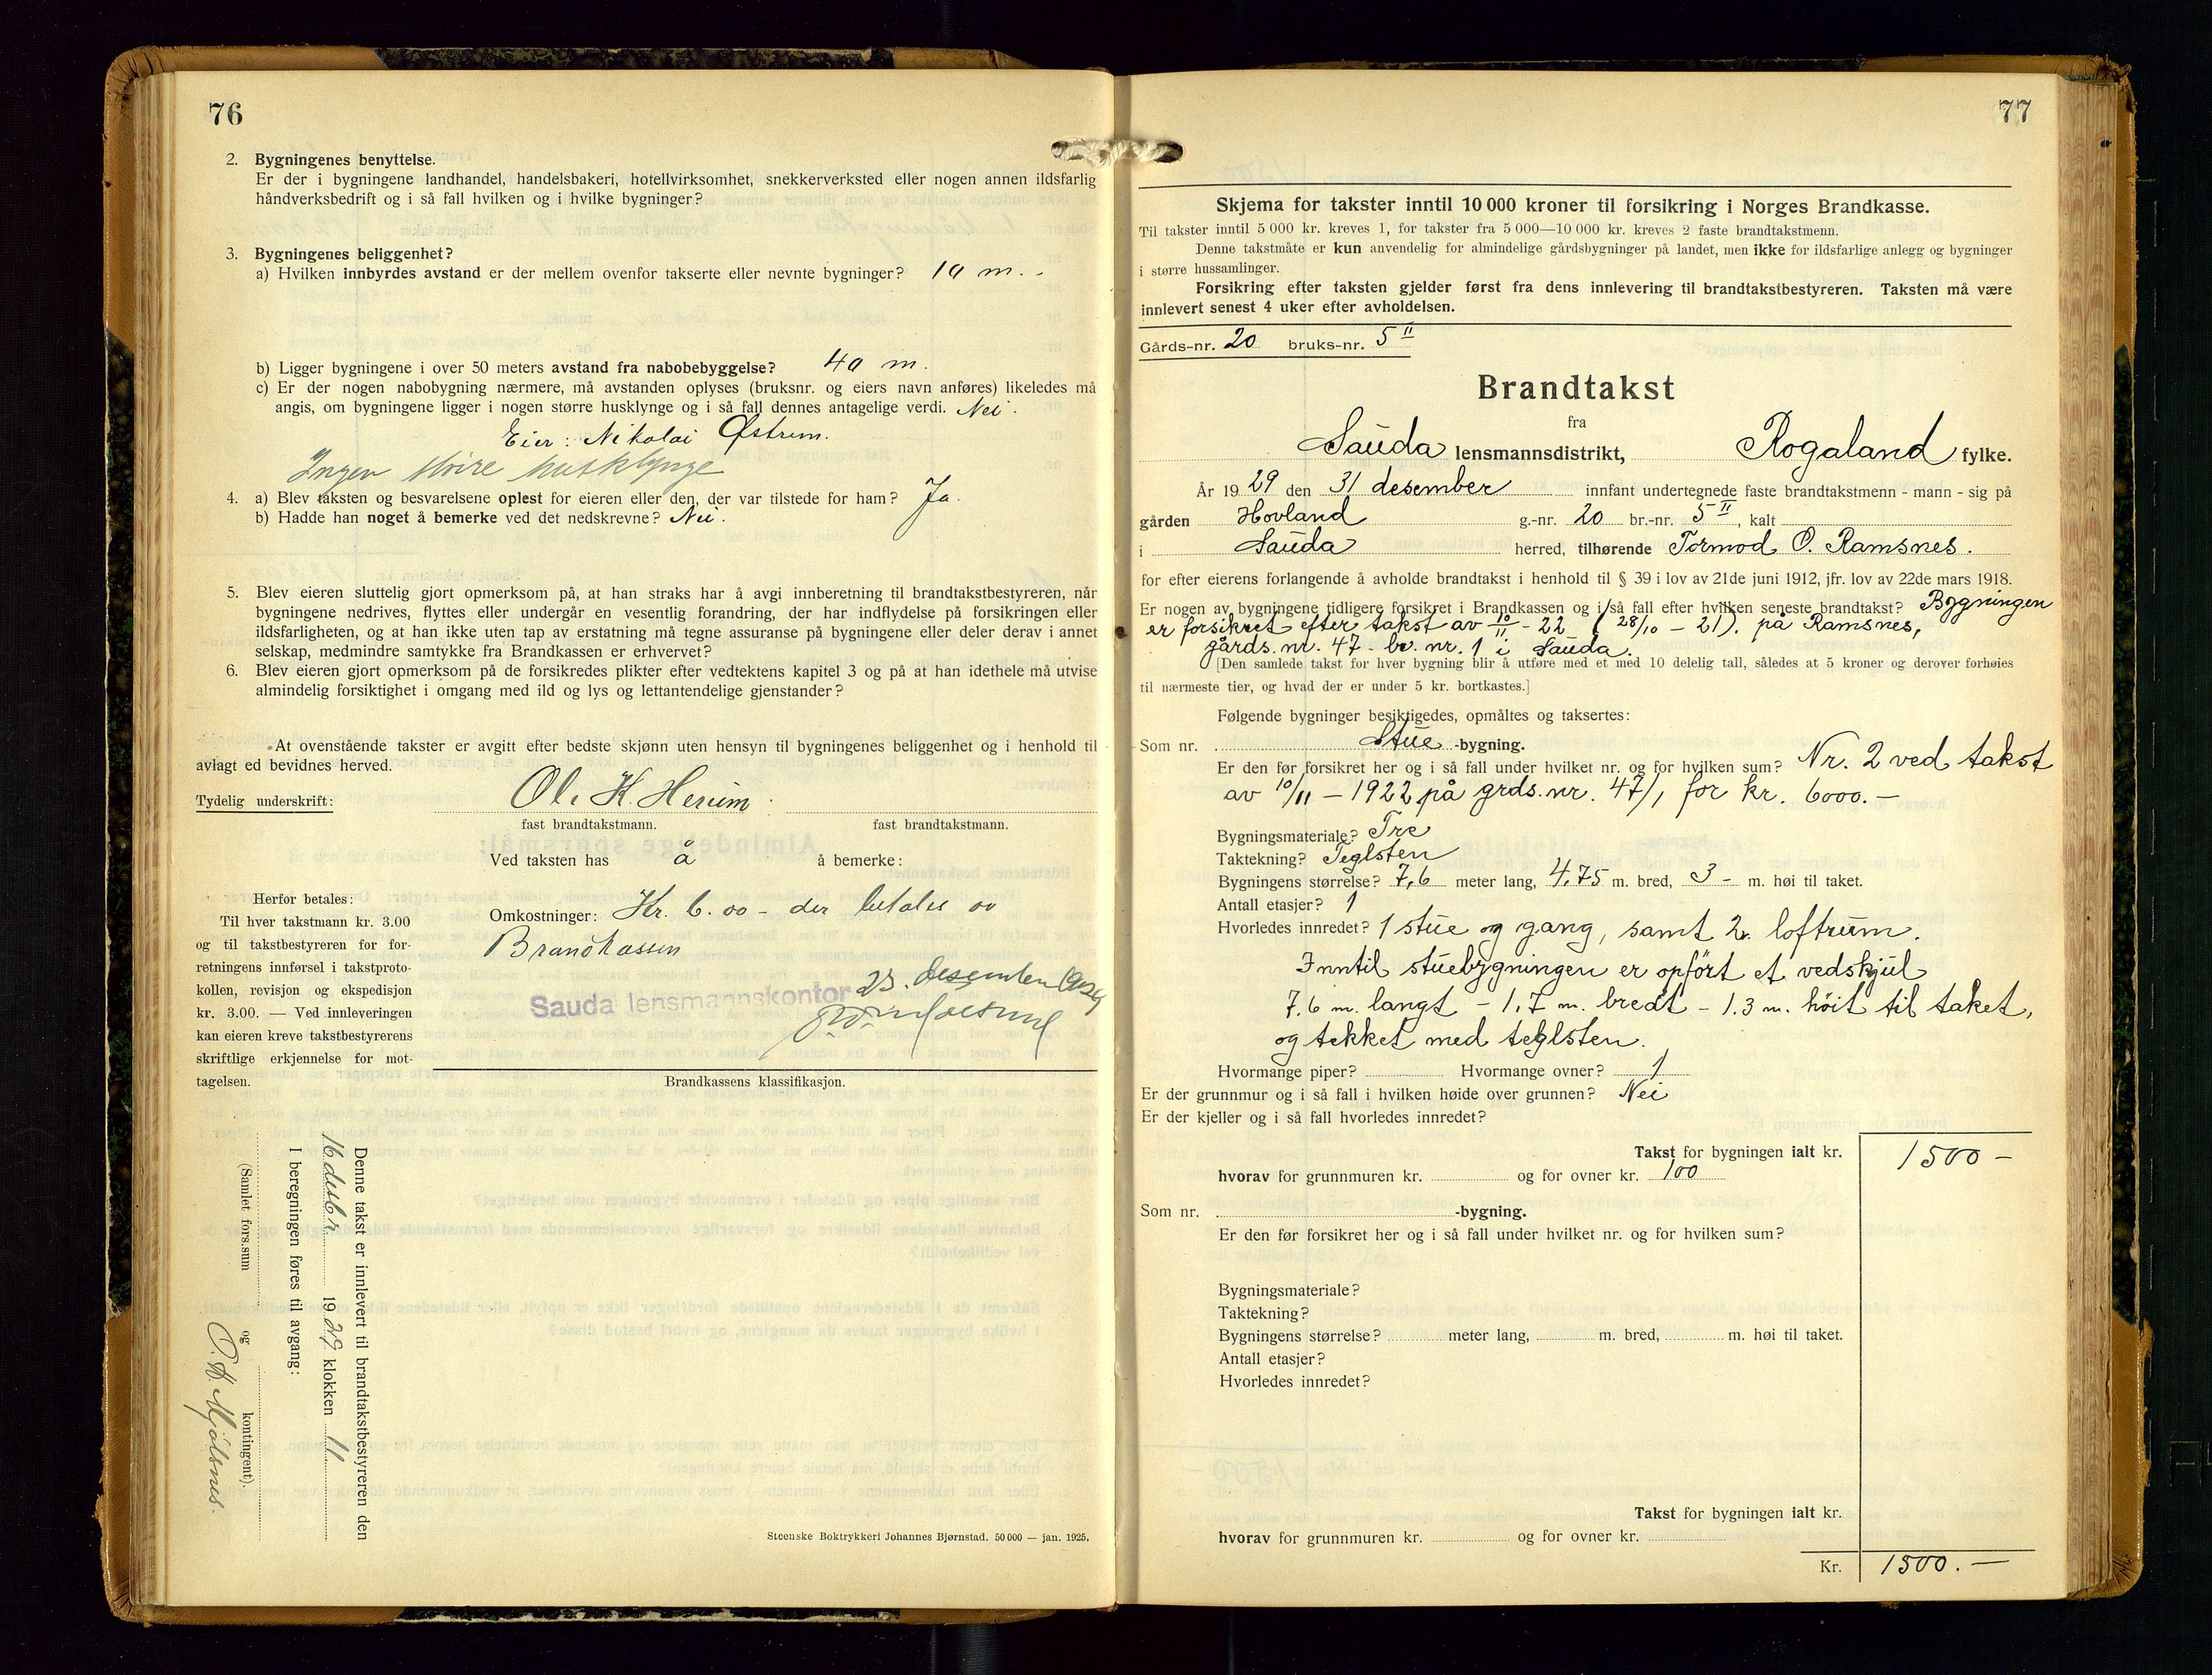 76
2. Bygningenes benyttelse.
Er der i bygningene landhandel, handelsbakeri, hotellvirksomhet, snekkerverksted eller nogen annen ildsfarlig
håndverksbedrift og i så fall hvilken og i hvilke bygninger?
3. Bygningenes beliggenhet?
a) Hvilken innbyrdes avstand er der mellem ovenfor takserte eller nevnte bygninger? 10 m. -
b) Ligger bygningene i over 50 meters avstand fra nabobebyggelse? 40 m.
c) Er der nogen nabobygning nærmere, må avstanden oplyses (bruksnr. og eiers navn anføres) likeledes må
angis, om bygningene ligger i nogen større husklynge og i så fall dennes antagelige verdi. Nei.
Eier: Nikolai Østrem.
Ingen större husklynge
4. a) Blev taksten og besvarelsene oplest for eieren eller den, der var tilstede for ham? Ja.
b) Hadde han noget å bemerke ved det nedskrevne? Nei.
5. Blev eieren sluttelig gjort opmerksom på, at han straks har å avgi innberetning til brandtakstbestyreren, når
bygningene nedrives, flyttes eller undergår en vesentlig forandring, der har indflydelse på forsikringen eller
ildsfarligheten, og at han ikke uten tap av erstatning må tegne assuranse på bygningene eller deler derav i annet
selskap, medmindre samtykke fra Brandkassen er erhvervet?
6. Blev eieren gjort opmerksom på de forsikredes plikter efter vedtektens kapitel 3 og på at han idethele må utvise
almindelig forsiktighet i omgang med ild og lys og lettantendelige gjenstander?
At ovenstående takster er avgitt efter bedste skjønn uten hensyn til bygningenes beliggenhet og i henhold til
avlagt ed bevidnes herved.
Tydelig underskrift: Ole K. Herum.
fast brandtakstmann. fast brandtakstmann.
Ved taksten has å å bemerke:
Herfor betales:
Til hver takstmann kr. 3.00
og til takstbestyreren for for-
retningens innførsel i takstproto-
kollen, revisjon og ekspedisjon
kr. 3.00. — Ved innleveringen
kan eieren kreve takstbestyrerens
skriftlige erkjennelse for mot-
tagelsen.
Omkostninger: Kr. 6.00 - der betales av
Brandkassen
23. desember 1929
Sauda lensmannskontor
Brandkassens klassifikasjon.
Denne takst er innlevert til brandtakstbestyreren den
16 desbr. 1929 klokken 11
I beregningen føres til avgang:
(Samlet fors.sum og kontingent).
O. H. Mjölsnes.
Steenske Boktrykkeri Johannes Bjørnstad. 50 000 — jan. 1925.
77
Skjema for takster inntil 10 000 kroner til forsikring i Norges Brandkasse.
Til takster inntil 5 000 kr. kreves 1, for takster fra 5 000—10 000 kr. kreves 2 faste brandtakstmenn.
Denne takstmåte er kun anvendelig for almindelige gårdsbygninger på landet, men ikke for ildsfarlige anlegg og bygninger
i større hussamlinger.
Forsikring efter taksten gjelder først fra dens innlevering til brandtakstbestyreren. Taksten må være
innlevert senest 4 uker efter avholdelsen.
Gårds-nr. 20 bruks-nr. 5 II
Brandtakst
fra
Sauda lensmannsdistrikt, Rogaland fylke.
År 1929 den 31 desember innfant undertegnede faste brandtakstmenn - mann - sig på
gården Hovland g.-nr. 20 br.-nr. 5 II, kalt
i Sauda herred, tilhørende Tormod O. Ramsnes.
for efter eierens forlangende å avholde brandtakst i henhold til § 39 i lov av 21de juni 1912, jfr. lov av 22de mars 1918.
Er nogen av bygningene tidligere forsikret i Brandkassen og i så fall efter hvilken seneste brandtakst? Bygningen
er forsikret efter takst av 10/11 - 22 (28/10 - 21). på Ramsnes,
gårds.nr. 47 - br. nr. 1 i Sauda.
[Den samlede takst for hver bygning blir å utføre med et med 10 delelig tall, således at 5 kroner og derover forhøies
til nærmeste tier, og hvad der er under 5 kr. bortkastes.]
Følgende bygninger besiktigedes, opmåltes og taksertes:
Som nr. Stue -bygning.
Er den før forsikret her og i så fall under hvilket nr. og for hvilken sum? Nr. 2 ved takst
av 10/11 - 1922 på grds.nr. 47/1 for kr. 6000.-
Bygningsmateriale? Tre
Taktekning? Teglsten
Bygningens størrelse? 7,6 meter lang, 4,75 m. bred, 3 - m. høi til taket.
Antall etasjer? 1
Hvorledes innredet? 1 stue og gang, samt 2. loftrum.
Inntil stuebygningen er opfört et vedskjul
7,6 m. langt - 1,7 m. bredt - 1.3 m. höit til taket,
og tekket med teglsten.
Hvormange piper? Hvormange ovner? 1
Er der grunnmur og i så fall i hvilken høide over grunnen? Nei
Er der kjeller og i så fall hvorledes innredet?
Takst for bygningen ialt kr. 1500 -
hvorav for grunnmuren kr. og for ovner kr. 100
Som nr. -bygning.
Er den før forsikret her og i så fall under hvilket nr. og for hvilken sum?
Bygningsmateriale?
Taktekning?
Bygningens størrelse? meter lang, m. bred, m. høi til taket.
Antall etasjer?
Hvorledes innredet?
Takst for bygningen ialt kr.
hvorav for grunnmuren kr. og for ovner kr.
Kr. 1500.-